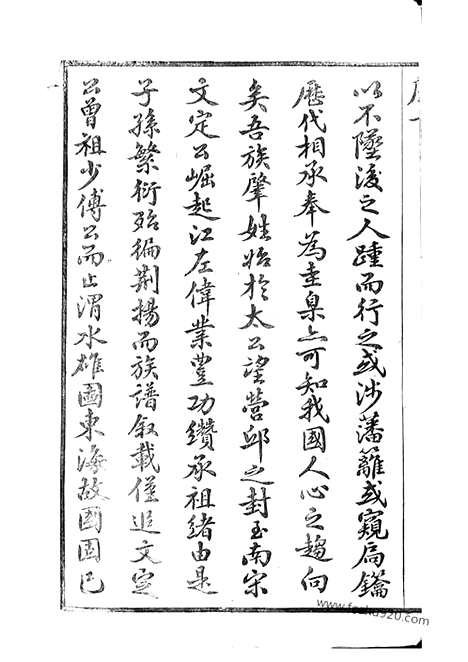 以不墜後之人踵而行之或涉藩籬或窺扃鑰
歷代相承奉為圭臬亦可知我國人心之趨向
矣吾族肇姓始於太公望營邱之封至南宋
文定公崛起江左偉業豐功纘承祖緒由是
子孫繁衍殆徧荆揚而族譜叙載僅追文定
公曾祖少傅公而止渭水雄圖東海故國固已